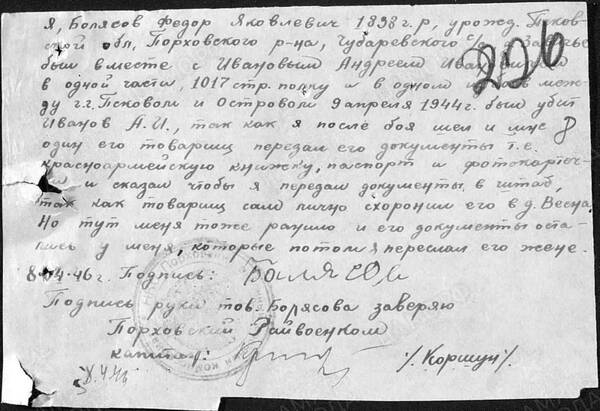 Я, Болясов Федор Яковлевич 1898 г.р, урожд. Псков
ской обл, Порховского р-на, Чубаревского с/с
был вместе с Ивановым Андреем
226
в одной части, 1017 стр. полку и в одном меж-
ду г.г. Псковом и Островом 9 апреля 1944г. был убит
Иванов А.И., так как я после боя шел и мне
один его товарищ передал его документы т.е.
красноармейскую книжку, паспорт и фотокарточ-
и сказал чтобы я передал документы в штаб,
так как товарищ сам лично схоронил его в д. Весна
Но тут меня тоже ранило и его документы оста-
лись у меня, которые потом я переслал его жене.
8-04-46г. Подпись:
Подпись руки тов. Болясова заверяю
Порховский Райвоенком
капитан: /. Коршун/.